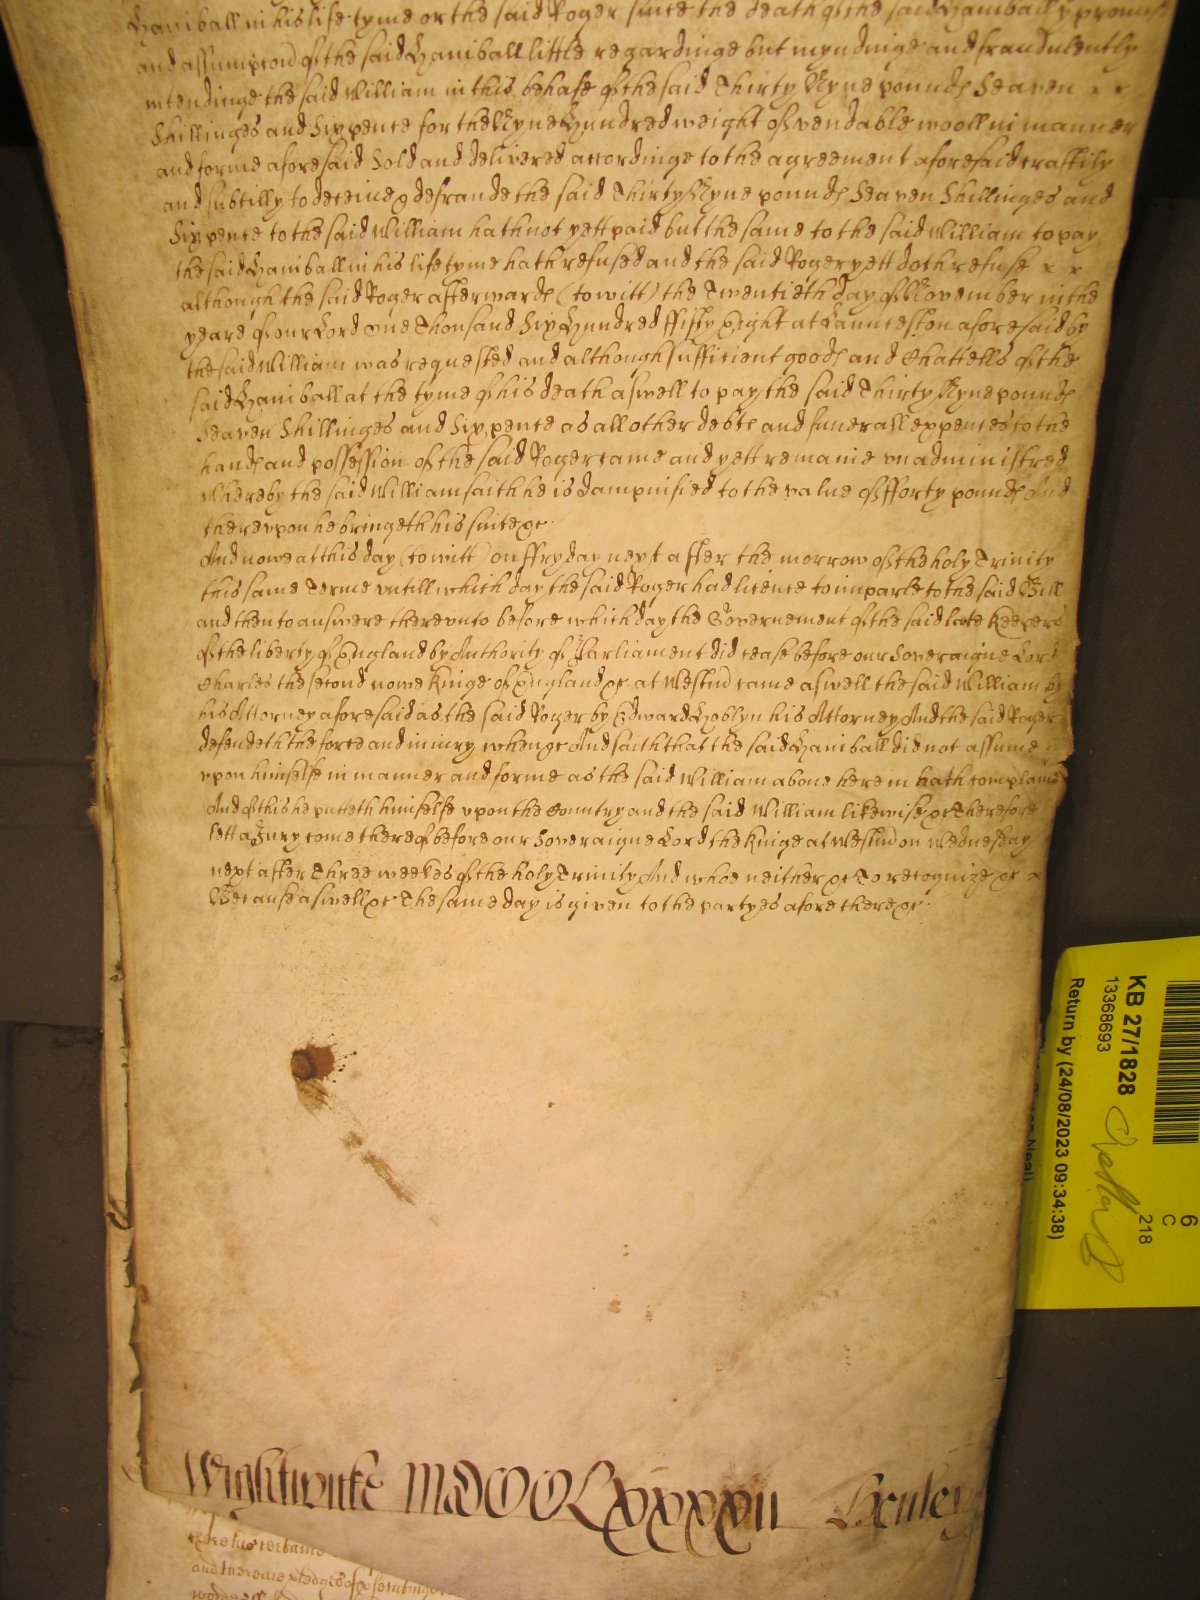 Haniball in his life tyme or the said Roger since the death of the said Haniball ye promise
and assumpcon of the said Haniball little regardinge but myndinge and fraudulently
intendinge the said William in this behalfe of the said Thirty Nyne pounds Seaven x x
Shillinges and Six pence for the Nyne Hundred weight of vendable wooll in manner
and forme aforesaid Sold and delivered accordinge to the agreement aforesaid craftily
and subtilly to deceive & defraude the said Thirty Nyne pounds Seaven Shillinges and
Six pence to the said William hath not yett paid but the same to the said William to pay
the said Haniball in his life tyme hath refused and the said Roger yett doth refuse x x
although the said Roger afterwards (to witt) the Twentieth day of November in the
yeare of our Lord one Thousand Six Hundred ffifty Eight at Launceston aforesaid by
the said William was requested and although sufficient goods and Chattells of the
said Haniball at the tyme of his death aswell to pay the said Thirty Nyne pounds
Seaven Shillinges and Six pence as all other debts and funerall expences to the
hands and possession of the said Roger came and yett remaine unadministred
Whereby the said William saith he is dampnified to the value of fforty pounds And
thereupon he bringeth his suite &c
And nowe at this day (to witt) on ffryday next after the morrow of the holy Trinity
this same Terme untill which day the said Roger had licence to imparle to the said Bill
and then to answere thereunto before which day the Governement of the said late Keepers
of the liberty of England by Authority of Parliament did cease before our Soveraigne Lord
Charles the second nowe Kinge of England &c at Westm came aswell the said William by
his Attorney aforesaid as the said Roger by Edward Hoblyn his Attorney And the said Roger
defendeth the force and iniury when &c And saith that the said Haniball did not assume
upon himselfe in manner and forme as the said William above herein hath complained
And of this he putteth himselfe upon the Country and the said William likewise &c Therefore
lett a Jury come thereof before our Soveraigne Lord the Kinge at Westm on Wednesday
next after Three weekes of the holy Trinity And whoe neither &c To recognize &c
Because aswell &c The same day is given to the partyes afore there &c
Wightwicke MDCCLxxxxxii Henley
and there pledges of
KB 27/1828
13368693
Return by (24/08/2023 09:34:38)
218
C
6